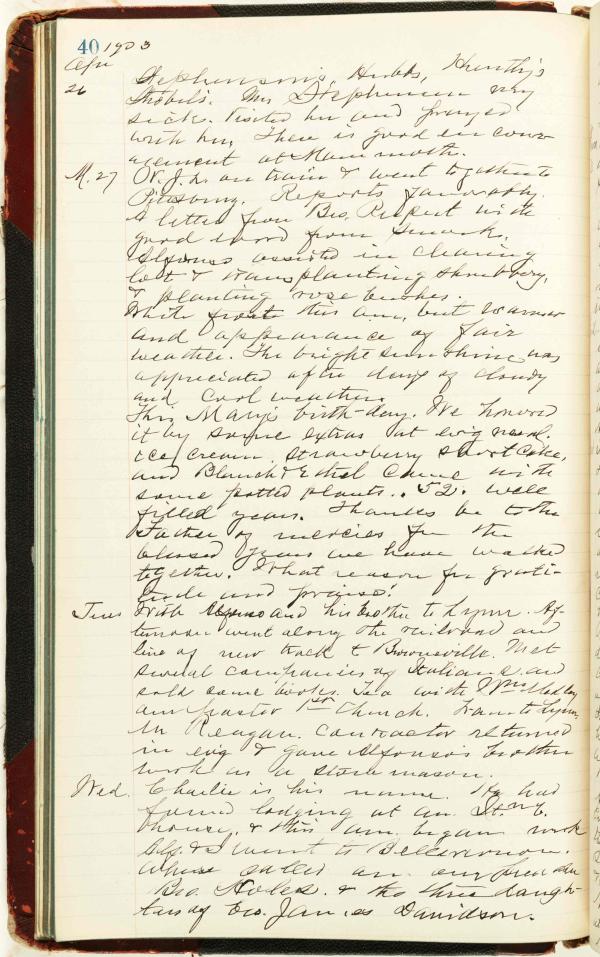 40 1903
Apr
26 Stephenson's, Hubbs, Huntly's
Strobel's. Mrs Stephenson very
sick. Visited her and prayed
with her. There is good encour-
agement at Mammoth.
M. 27 W. J. L. on train & went together to
Pittsburg. Reports favorably.
A letter from Bro. Rupert with
good word from Smock.
Alfonso assisted in cleaning
lot & transplanting shrubbery,
& planting rose bushes.
White frost this am, but warmer
and appearance of fair
weather. The bright sunshine was
appreciated after days of cloudy
and cool weather.
This Mary's birth-day. We honored
it by some extras at ev'g meal.
ice cream, strawberry short cake,
and Blanch & Ethel came with
some potted plants. 52. well
filled years. Thanks be to the
Father of mercies for the
blessed years we have walked
together. What reason for grati-
tude and praise!
Tues With Alfonso and his brother to Lynn. Af-
ternoon went along the railroad and
line of new track to Brownsville. Met
several companies of Italians and
sold some books. Tea with
and pastor 1st Church. Tram to Lynn,
Mr Reagan. Contractor returned
in ev'g & gave Alfonso's brother
work as a stone mason.
Wed. Charlie is his name. He had
found lodging at an
house, & this am. began work
Alf. & I went to Bellevernon.
where called on our friends
Bro. Holes & the three daugh-
ters of Bro. James Davidson.